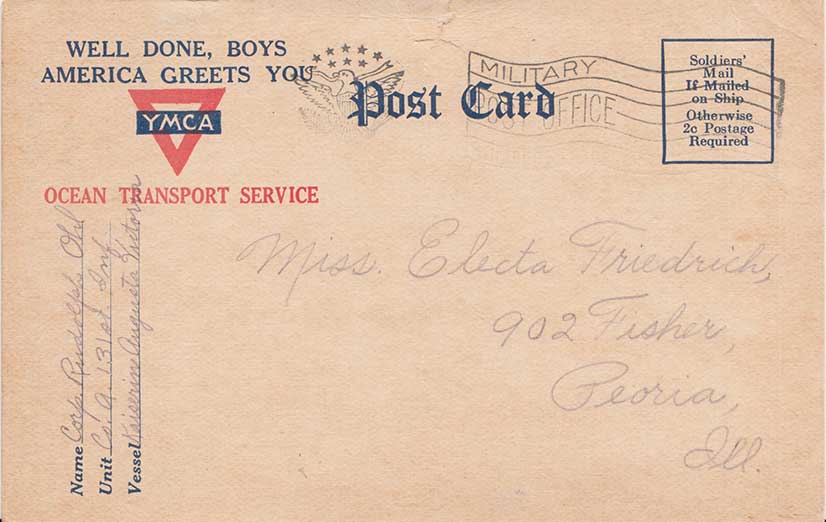 WELL DONE, BOYS
AMERICA GREETS YOU
YMCA
OCEAN TRANSPORT SERVICE
Post Card
MILITARY
POST OFFICE
Soldiers'
Mail
If Mailed
on Ship
Otherwise
2c Postage
Required
Miss. Electa Friedrich,
902 Fisher,
Peoria,
Ill.
Name Corp. Rudolph Ohl
Unit Co. A. 131st Inf
Vessel Kaiserin Augusta Victoria